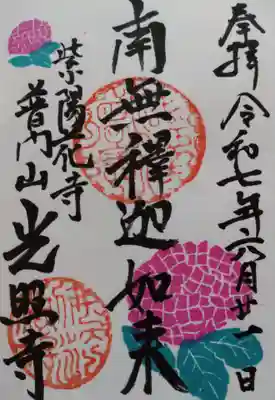 奉拝 令和七年六月廿一日
南無釋迦如来
紫陽花寺
普門山 光照寺